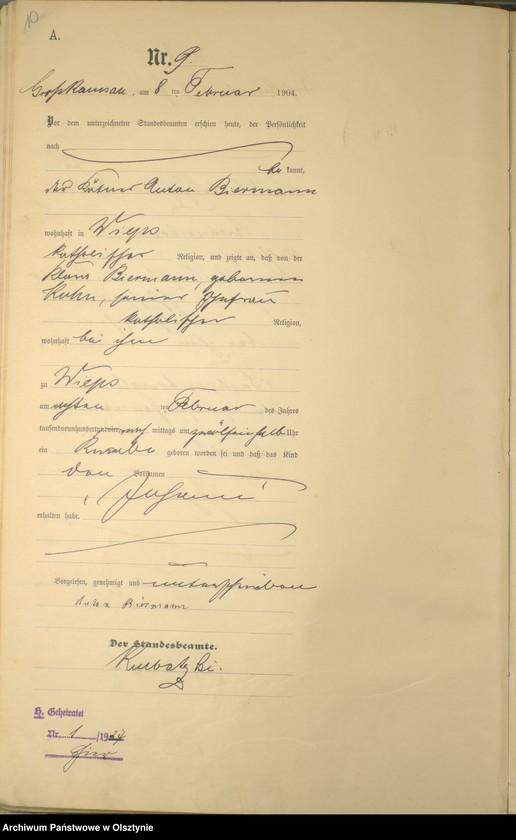 10
A.
Nr. 9.
Groß Ramsau, am 8 ten Februar 1904.
Vor dem unterzeichneten Standesbeamten erschien heute, der Persönlichkeit
nach
be kannt,
der Kätner Anton Biermann
wohnhaft in Wieps
katholischer Religion, und zeigte an, daß von der
Klara Biermann, geborenen
Kuhn, seiner Ehefrau
katholischer Religion,
wohnhaft bei ihm
zu Wieps
am achten ten Februar des Jahres
tausendneunhundertundvier, nach mittags um zwölfeinhalb Uhr
ein Knabe geboren worden sei und daß das Kind
den Vornamen
„Johann“
erhalten habe.
Vorgelesen, genehmigt und unterschrieben
Anton Biermann
Der Standesbeamte.
Kurbatzki.
H. Geheiratet
Nr. 1 /1924
hier
Archiwum Państwowe w Olsztynie